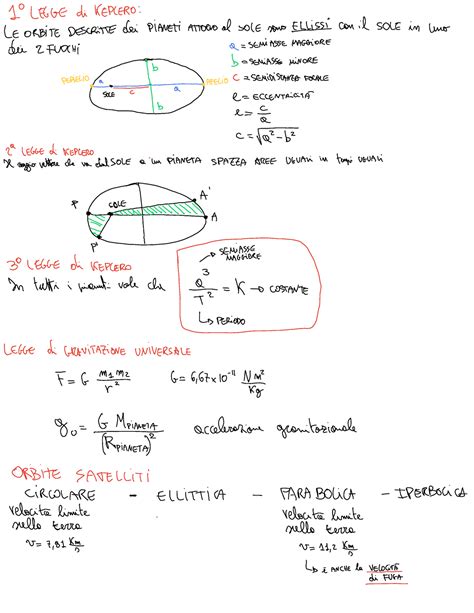 1° LEGGE di KEPLERO:
LE ORBITE DESCRITTE DEI PIANETI ATTORNO al SOLE sono ELLISSI con il SOLE in uno
dei 2 FUOCHI
a = SEMIASSE MAGGIORE
b = SEMIASSE MINORE
c = SEMIDISTANZA FOCALE
e = ECCENTRICITÀ
e = c/a
c = √a² - b²
PERIELIO a SOLE c b b AFELIO
2ª LEGGE di KEPLERO
Il raggio vettore che va dal SOLE a un PIANETA SPAZZA AREE UGUALI in tempi UGUALI
P SOLE A'
A
P'
3° LEGGE di KEPLERO
In tutti i pianeti vale che
SEMIASSE
MAGGIORE
a³/T² = K → COSTANTE
PERIODO
LEGGE di GRAVITAZIONE UNIVERSALE
F = G m₁m₂/r² G = 6,67×10⁻¹¹ N m²/Kg
g₀ = G M PIANETA/(R PIANETA)² accelerazione gravitazionale
ORBITE SATELLITI
CIRCOLARE - ELLITTICA - PARABOLICA - IPERBOLICA
velocità limite velocità limite
nella terra nella terra
v = 7,81 Km/s v = 11,2 Km/s
↳ è anche la VELOCITÀ
di FUGA